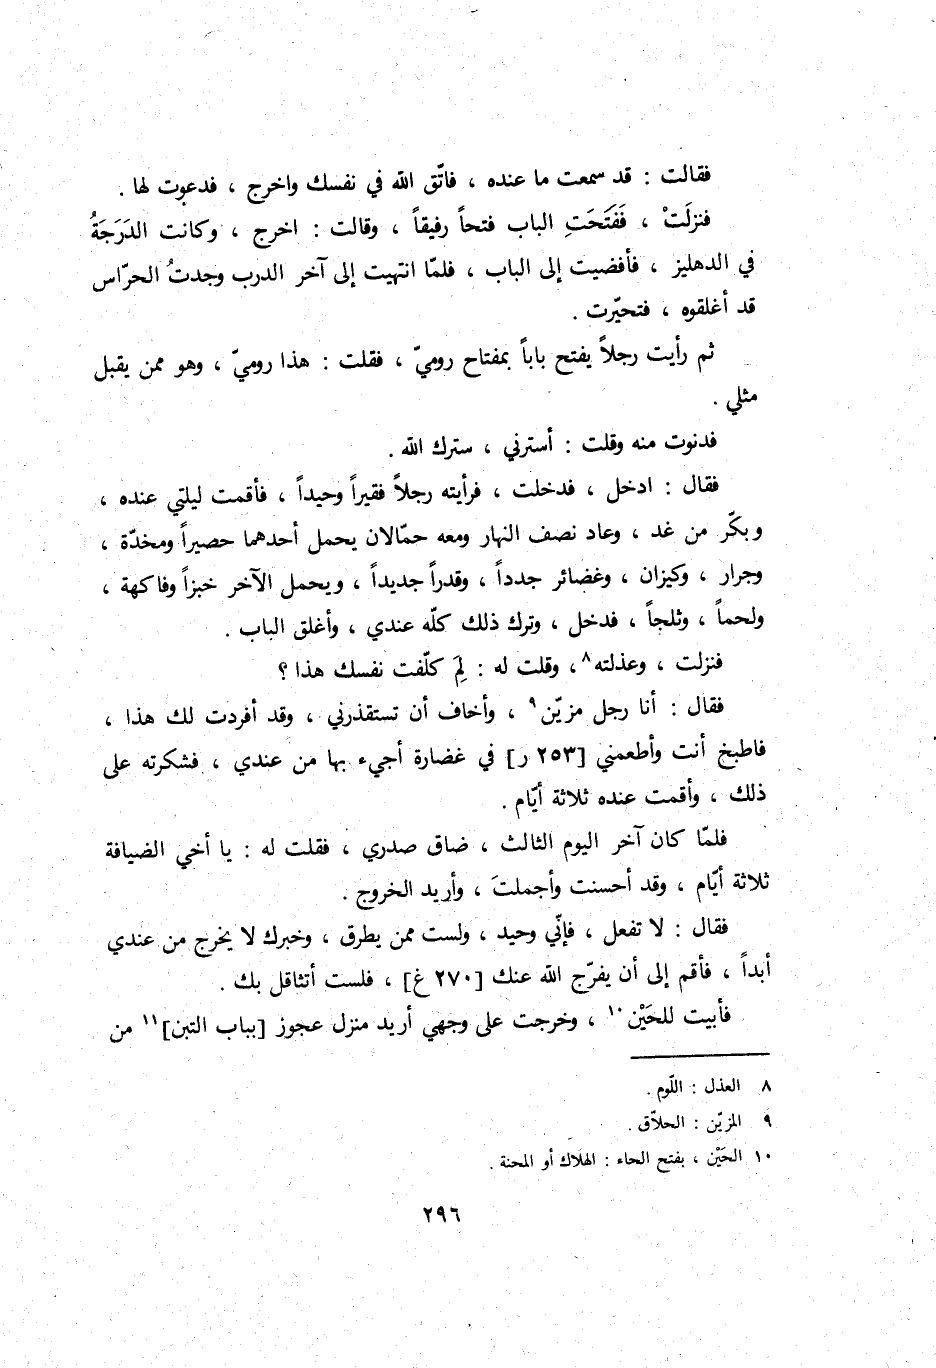 فقالت : قد سمعت ما عنده ، فاتّق الله في نفسك واخرج ، فدعوت لها .
فنزلَتْ ، فَفَتَحَتِ الباب فتحاً رفيقاً ، وقالت : اخرج ، وكانت الدَرَجَةُ
في الدهليز ، فأفضيت إلى الباب ، فلمّا انتهيت إلى آخر الدرب وجدتُ الحرّاس
قد أغلقوه ، فتحيّرت .
ثم رأيت رجلاً يفتح باباً بمفتاح روميّ ، فقلت : هذا روميّ ، وهو ممن يقبل
مثلي .
فدنوت منه وقلت : أسترني ، سترك الله .
فقال : ادخل ، فدخلت ، فرأيته رجلاً فقيراً وحيداً ، فأقمت ليلتي عنده ،
وبكّر من غد ، وعاد نصف النهار ومعه حمّالان يحمل أحدهما حصيراً ومخدّة ،
وجرار ، وكيزان ، وغضائر جدداً ، وقدراً جديداً ، ويحمل الآخر خبزاً وفاكهة ،
ولحماً ، وثلجاً ، فدخل ، وترك ذلك كلّه عندي ، وأغلق الباب .
فنزلت ، وعذلته٨ ، وقلت له : لِمَ كلّفت نفسك هذا ؟
فقال : أنا رجل مزيّن٩ ، وأخاف أن تستقذرني ، وقد أفردت لك هذا ،
فاطبخ أنت وأطعمني [٢٥٣ ر] في غضارة أجيء بها من عندي ، فشكرته على
ذلك ، وأقمت عنده ثلاثة أيّام .
فلمّا كان آخر اليوم الثالث ، ضاق صدري ، فقلت له : يا أخي الضيافة
ثلاثة أيّام ، وقد أحسنت وأجملتَ ، وأريد الخروج .
فقال : لا تفعل ، فإنّي وحيد ، ولست ممن يطرق ، وخبرك لا يخرج من عندي
أبداً ، فأقم إلى أن يفرّج الله عنك [٢٧٠ غ] ، فلست أتثاقل بك .
فأبيت للحَيْن١٠ ، وخرجت على وجهي أريد منزل عجوز [بباب التبن]١١ من
٨ العذل : اللّوم .
٩ المزيّن : الحلاّق .
١٠ الحَيْن ، بفتح الحاء : الهلاك أو المحنة .
٢٩٦